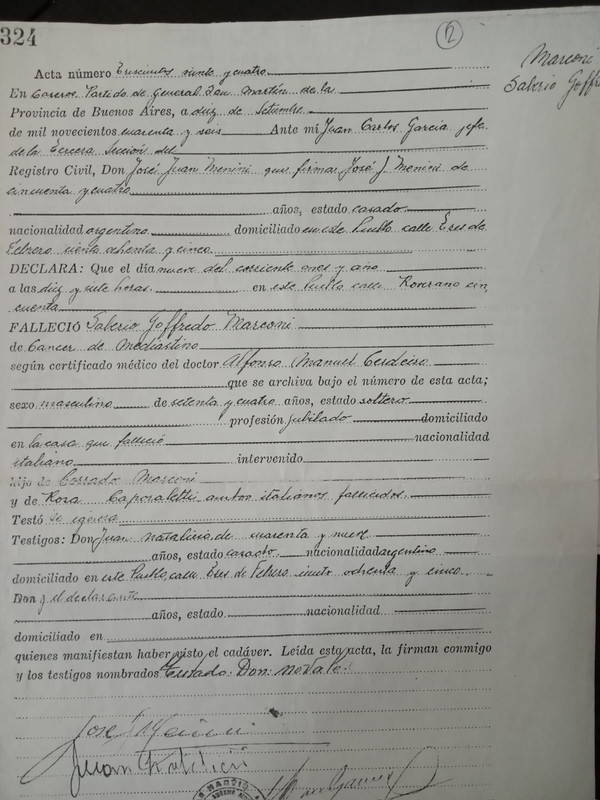 324
2
Marconi
Saberio Goffre
Acta número Trescientos veinte y cuatro
En Caseros Partido de General San Martín de la
Provincia de Buenos Aires, a diez de Setiembre
de mil novecientos cuarenta y seis Ante mí Juan Carlos García jefe
de la Tercera Sección del
Registro Civil, Don José Juan Menini que firma José J. Menini de
cincuenta y cuatro
años, estado casado
nacionalidad argentino domiciliado en este Pueblo calle Tres de
Febrero ciento ochenta y cinco
DECLARA: Que el día nueve del corriente mes y año
a las diez y siete horas. en este Pueblo calle Roverano cin
cuenta
FALLECIÓ Saberio Goffredo Marconi
de Cancer de Mediastino
según certificado médico del doctor Alfonso Manuel Cerdeiro
que se archiva bajo el número de esta acta;
sexo masculino de setenta y cuatro años, estado soltero
profesión jubilado domiciliado
en la casa que falleció nacionalidad
italiano intervenido
hijo de Corrado Marconi
y de Rosa Caporaletti ambos italianos fallecidos.
Testó se ignora
Testigos: Don Juan de cuarenta y nueve
años, estado casado nacionalidad argentino
domiciliado en este Pueblo calle Tres de Febrero ciento ochenta y cinco.
Don y el declarante
años, estado nacionalidad
domiciliado en
quienes manifiestan haber visto el cadáver. Leída esta acta, la firman conmigo
y los testigos nombrados Testado: Don: no vale.
José J. Menini
Juan